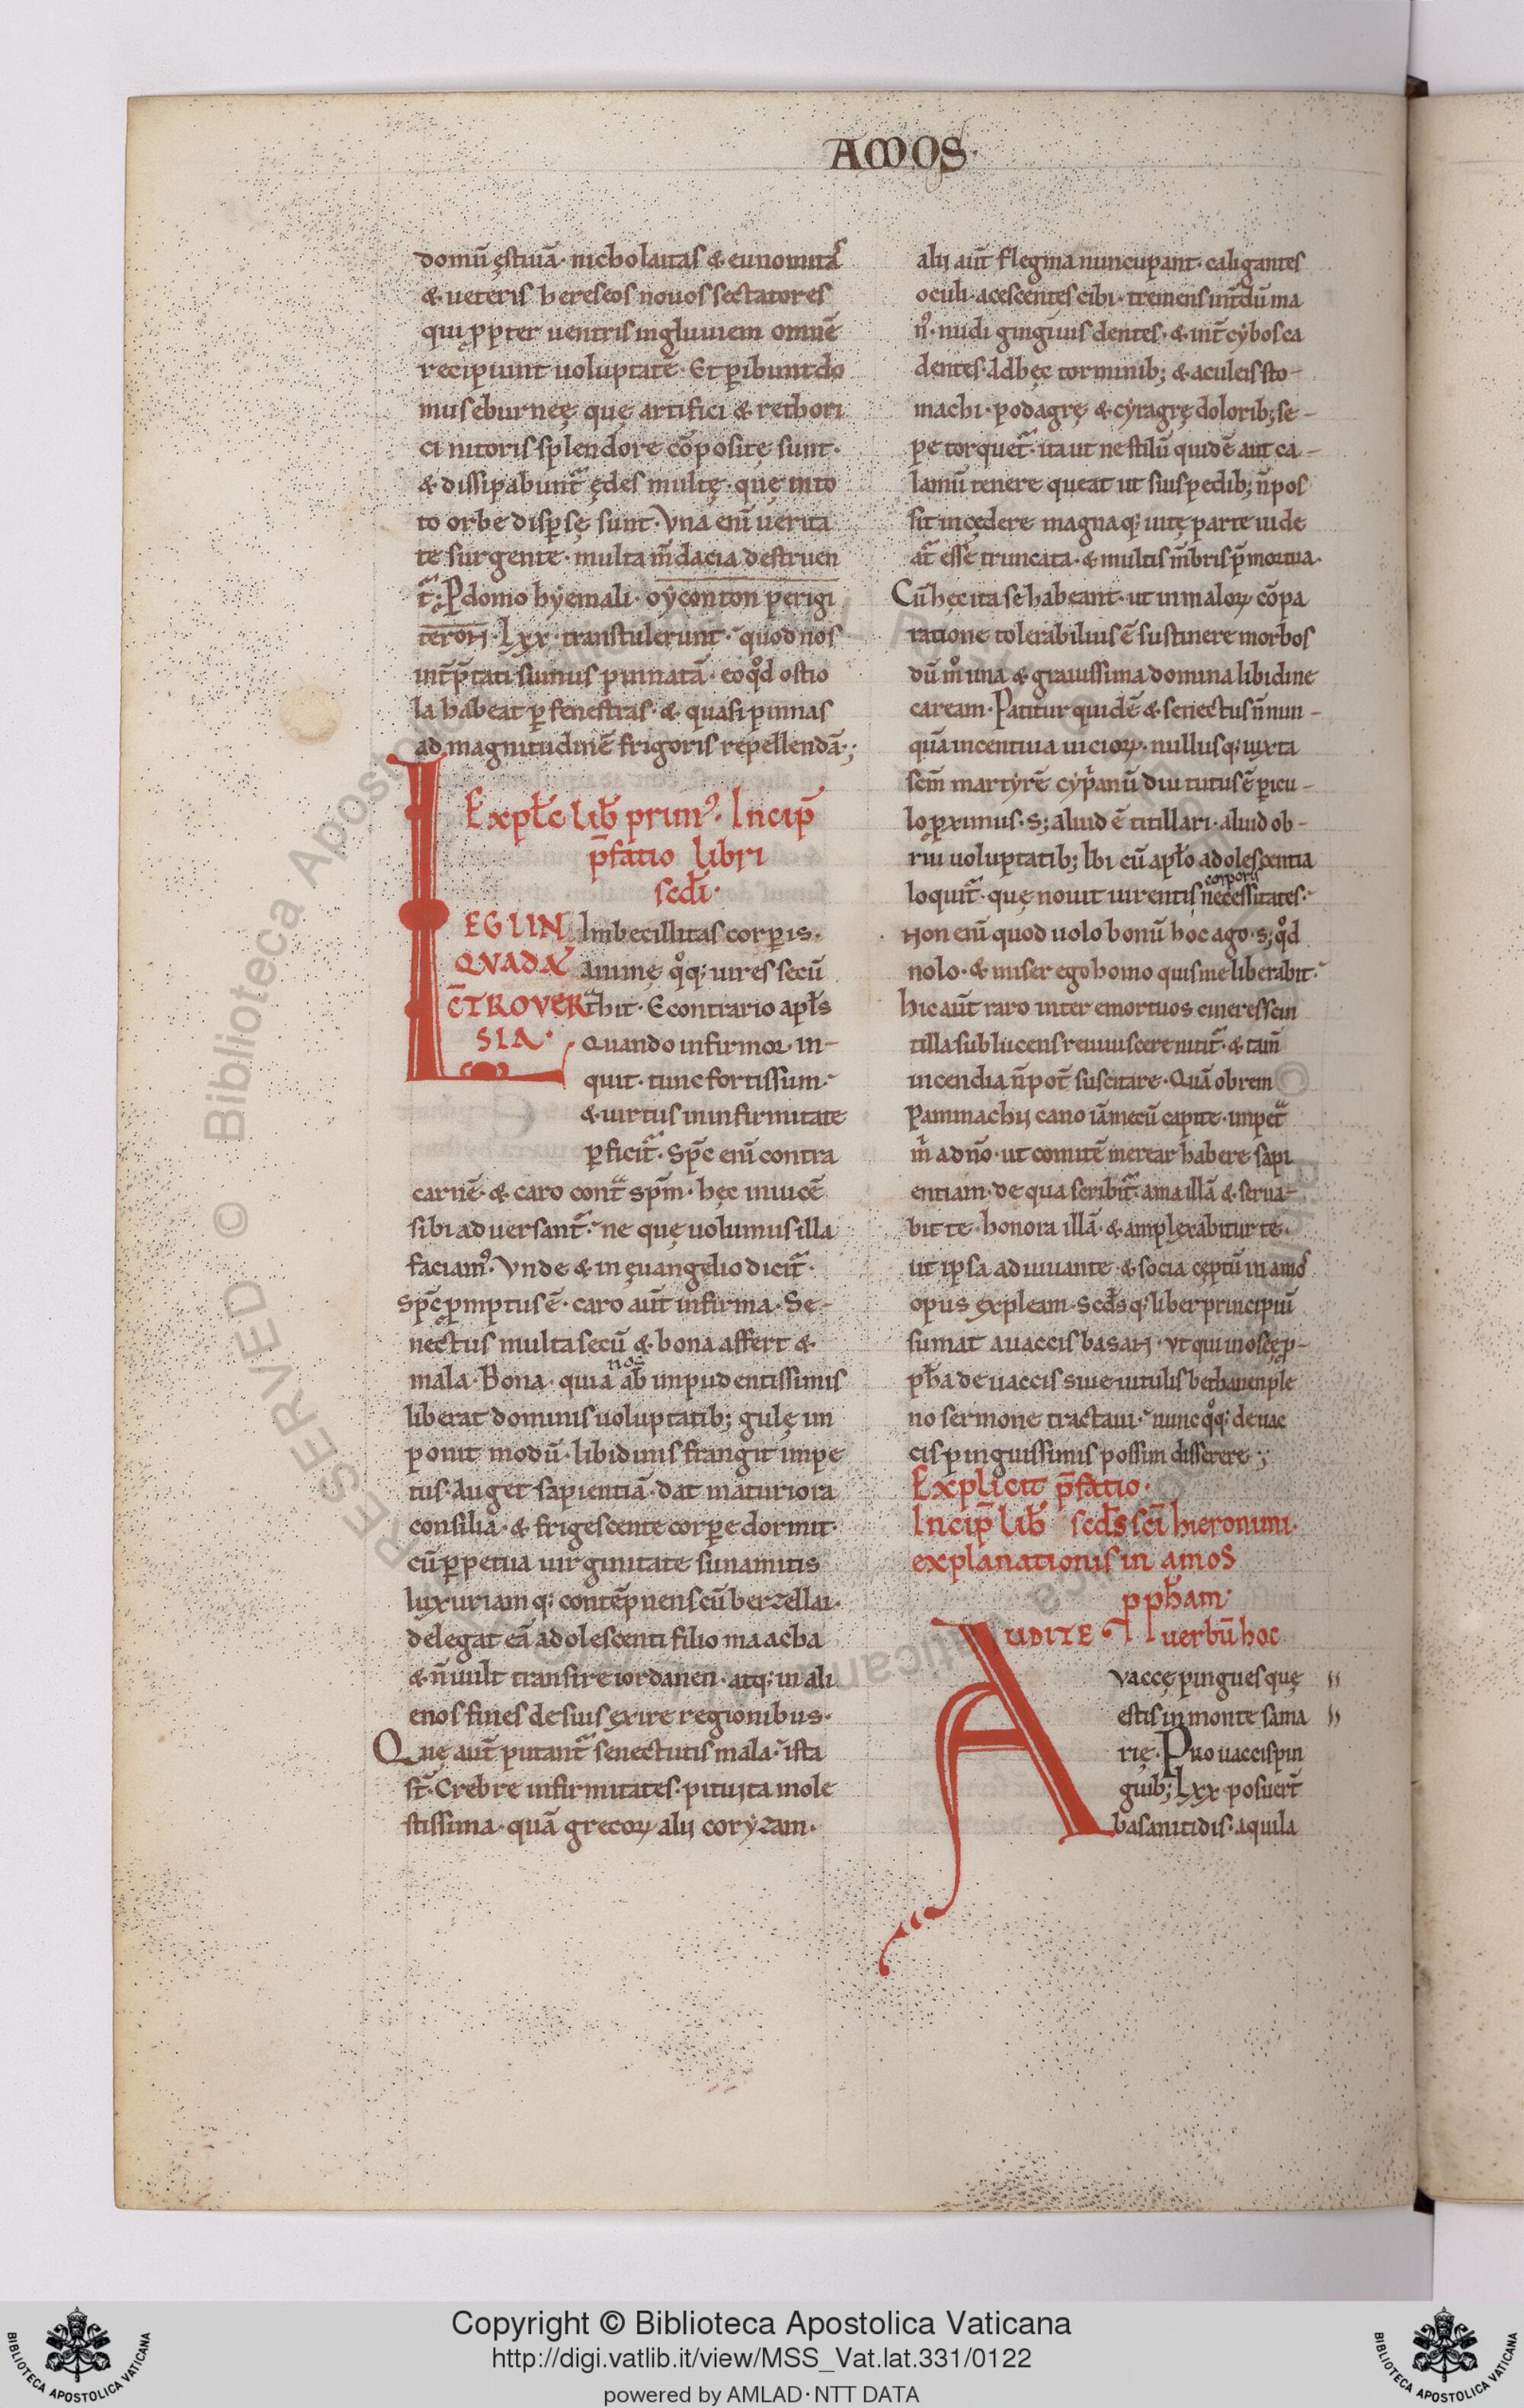 AMOS·
domū ęstiuā· nicholaitas & eunomitas
& ueteris hereseos nouos sectatores
qui ꝓpter uentris ingluuiem omnē
recipiunt uoluptatē· Et ꝑibunt do
mus eburneę que artifici & rethori
ci nitoris splendore cōpositę sunt·
& dissipabunt᷑ ędes multę· que in to
to orbe disꝑsę sunt· Vna eni᷑ uerita
te surgente· multa m̄dacia destruen
t᷑; P domo hyemali· oyconton perigi
teron· Lxx· transtulerunt· quod nos
int̄p̄tati sumus pinnatā· eo qd̊ ostio
la habeat ꝑ fenestras· & quasi pinnas
ad magnitudinē frigoris repellendā·;
Explic̄ lib̄ primꝰ· Incip̄
p̄fatio libri
scd̄i·
LEGI IN Imbecillitas corꝑis·
QVADĀ animę q̊q; uires secū
C̄TROVER t̄hit· E contrario apl̄s
SIA· Quando infirmor in-
quit· tunc fortis sum·
& uirtus in infirmitate
ꝑficit᷑· Sp̄c eni᷑ contra
carnē· & caro cont̄ sp̄m· hęc inuicē
sibi aduersant᷑· ne quę uolumus illa
faciamꝰ· Vnde & in ęuangelio dicit᷑·
Sp̄c ꝓmptus ē· caro aut̄ infirma· Se-
nectus multa secū & bona affert &
mala· Bona· quia nos ab impudentissimis
liberat dominis uoluptatib; gulę im
ponit modū· libidinis frangit impe
tus· Auget sapientiā· dat maturiora
consilia· & frigescente corꝑe dormit·
cū ꝑpetua uirginitate sunamitis
luxuriam q; contēpnens cū berzellai·
delegat eā adolescenti filio maacha
& n̄ uult transire iordanen· atq; in ali
enos fines de suis exire regionibus·
Quę aut̄ putant᷑ senectutis mala· ista
st̄· Crebre infirmitates· pituita mole
stissima· quā grecoꝝ alii coryzam·
alii aut̄ flegma nuncupant· caligantes
oculi· acescentes cibi· tremens int̄dū ma
nꝰ· nudi gingiuis dentes· & int̄ cybos ca
dentes· Adhęc torminib; & aculeis sto-
machi· podagrę & cyragrę dolorib; se-
pe torquet᷑· ita ut ne stilū quidē aut ca-
lamū tenere queat ut suis pedib; n̄ pos
sit incędere magnaq; uitę parte uide
at᷑ esse truncata· & multis m̄bris p̄mortua·
Cū hęc ita se habeant· ut in maloꝝ cōpa
ratione tolerabilius ē sustinere morbos
dū m̊ una & grauissima domina libidine
caream· Patitur quidē & senectus n̄ nun-
quā incentiua uicioꝝ· nullusq; iuxta
scm̄ martyrē cyp̄anū diu tutus ē ꝑicu-
lo ꝓximus· S; aliud ē titillari· aliud ob-
rui uoluptatib; Ibi cū apl̄o adolescentia
loquit᷑· quę nouit uirentis corporis necessitates·
Non eni᷑ quod uolo bonū hoc ago· s; qd̊
nolo· & miser ego homo quis me liberabit·
hic aut̄ raro inter emortuos cineres scin
tilla sublucens reuiuiscere nitit᷑· & tam̄
incendia n̄ pot̄ suscitare· Quā obrem
Pammachii cano iā mecū capite· impet̄
m̄ a dn̄o· ut comitē merear habere sapi
entiam· de qua scribit᷑· ama illā & serua-
bit te· honora illā· & amplexabitur te·
ut ipsa adiuuante· & socia cęptū in amos
opus expleam· Scd̄sq; liber principiū
sumat a uaccis basan· Vt qui in osęę ꝓ-
ph̄a de uaccis siue uitulis bethauen ple
no sermone tractaui· nunc q̊q; de uac
cis pinguissimis possim disserere·;
Explicit p̄fatio·
Incip̄ lib̄ scd̄s sc̄i hieronimi·
explanationis in amos
ppħam·
AUDITE uerbū hoc
Vaccę pingues quę
estis in monte sama
rię· Pro uaccis pin
guib; Lxx· posuer̄t
basanitidis· aquila
Copyright © Biblioteca Apostolica Vaticana
http://digi.vatlib.it/view/MSS_Vat.lat.331/0122
powered by AMLAD·NTT DATA
BIBLIOTECA APOSTOLICA VATICANA
BIBLIOTECA APOSTOLICA VATICANA